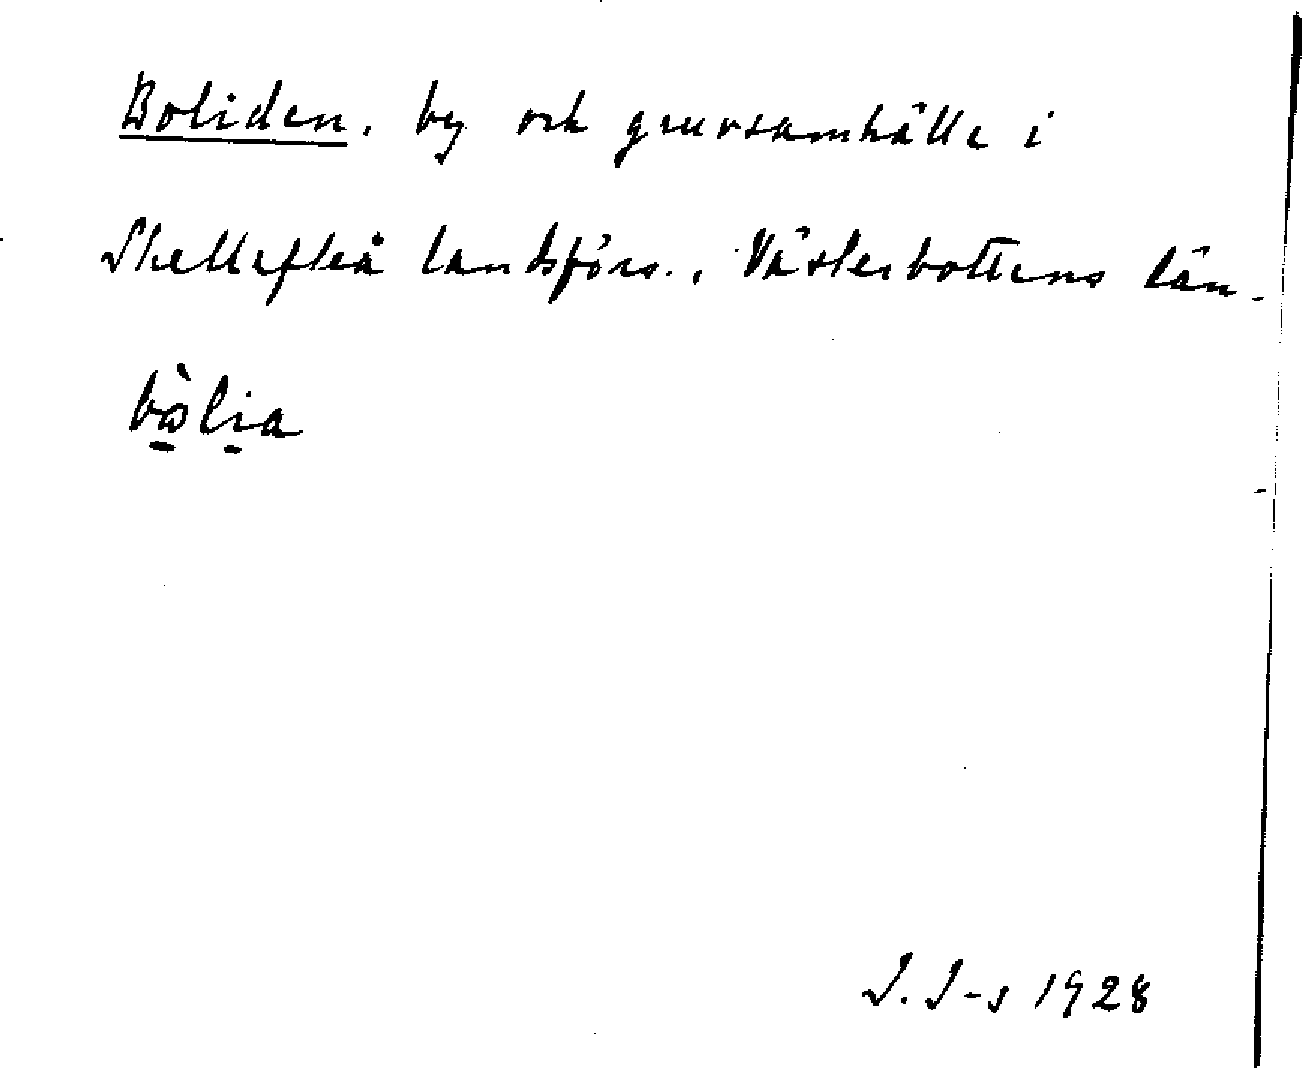 Boliden, by och gruvsamhälle i
Skellefteå landsförs., Västerbottens län.
bò̱li̱a
J. J-s 1928